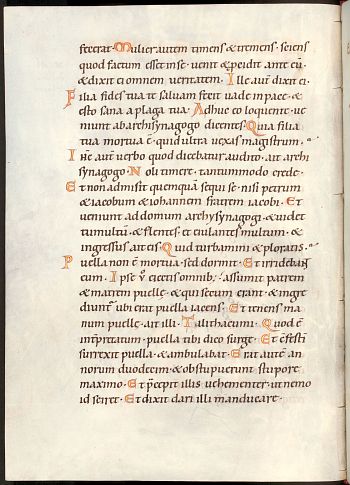 fecerat. Mulier autem timens & tremens. sciens
quod factum esset in se. venit & p̄cidit ante eū.
& dixit ei omnem veritatem. Ille aut̄ dixit ei.
Filia fides tua te salvam fecit vade in pace. &
esto sana a plaga tua. Adhuc eo loquente. ve
niunt ab archisynagogo dicentes. Quia filia
tua mortua ē. quid ultra vexas magistrum.
Ihc̄ aut̄ verbo quod dicebatur audito. ait archi
synagogo. Noli timere. tantummodo crede.
Et non admisit quemquā sequi se. nisi petrum
& iacobum & iohannem fratrem iacobi. Et
veniunt ad domum archysynagogi. & videt
tumultū. & flentes. et eiulantes multum. &
ingressus ait eis. Quid turbamini & ploratis.
Puella non ē mortua. sed dormit. Et irridebant
eum. Ipse v̄ eiectis omnib; assumit patrem
& matrem puellę. & qui secum erant. & ingre
diunt̄ ubi erat puella iacens. Et tenens ma
num puellę. ait illi. Talitha cumi. Quod ē
int̄pretatum. puella tibi dico surge. Et cōfestī
surrexit puella. & ambulabat. Erat autē an
norum duodecim. & obstupuerunt stupore
maximo. Et p̄cepit illis vehementer. ut nemo
id sciret. Et dixit dari illi manducare.